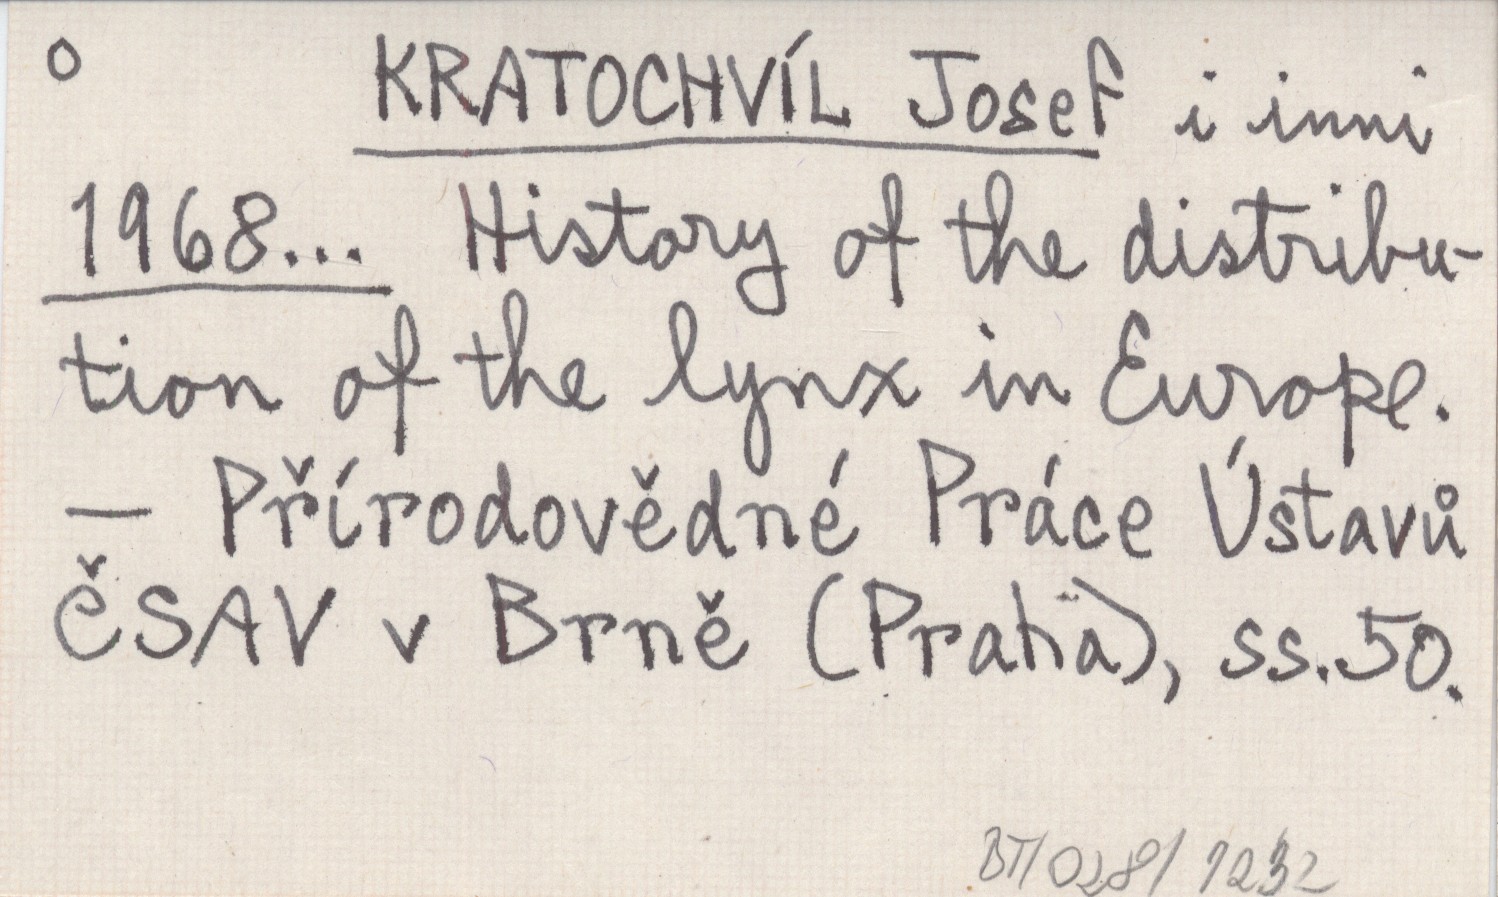 o KRATOCHVÍL Josef i inni
1968... History of the distribu-
tion of the lynx in Europe.
— Přírodovědné Práce Ústavů
ČSAV v Brně (Praha), ss. 50.
BT/028/1232